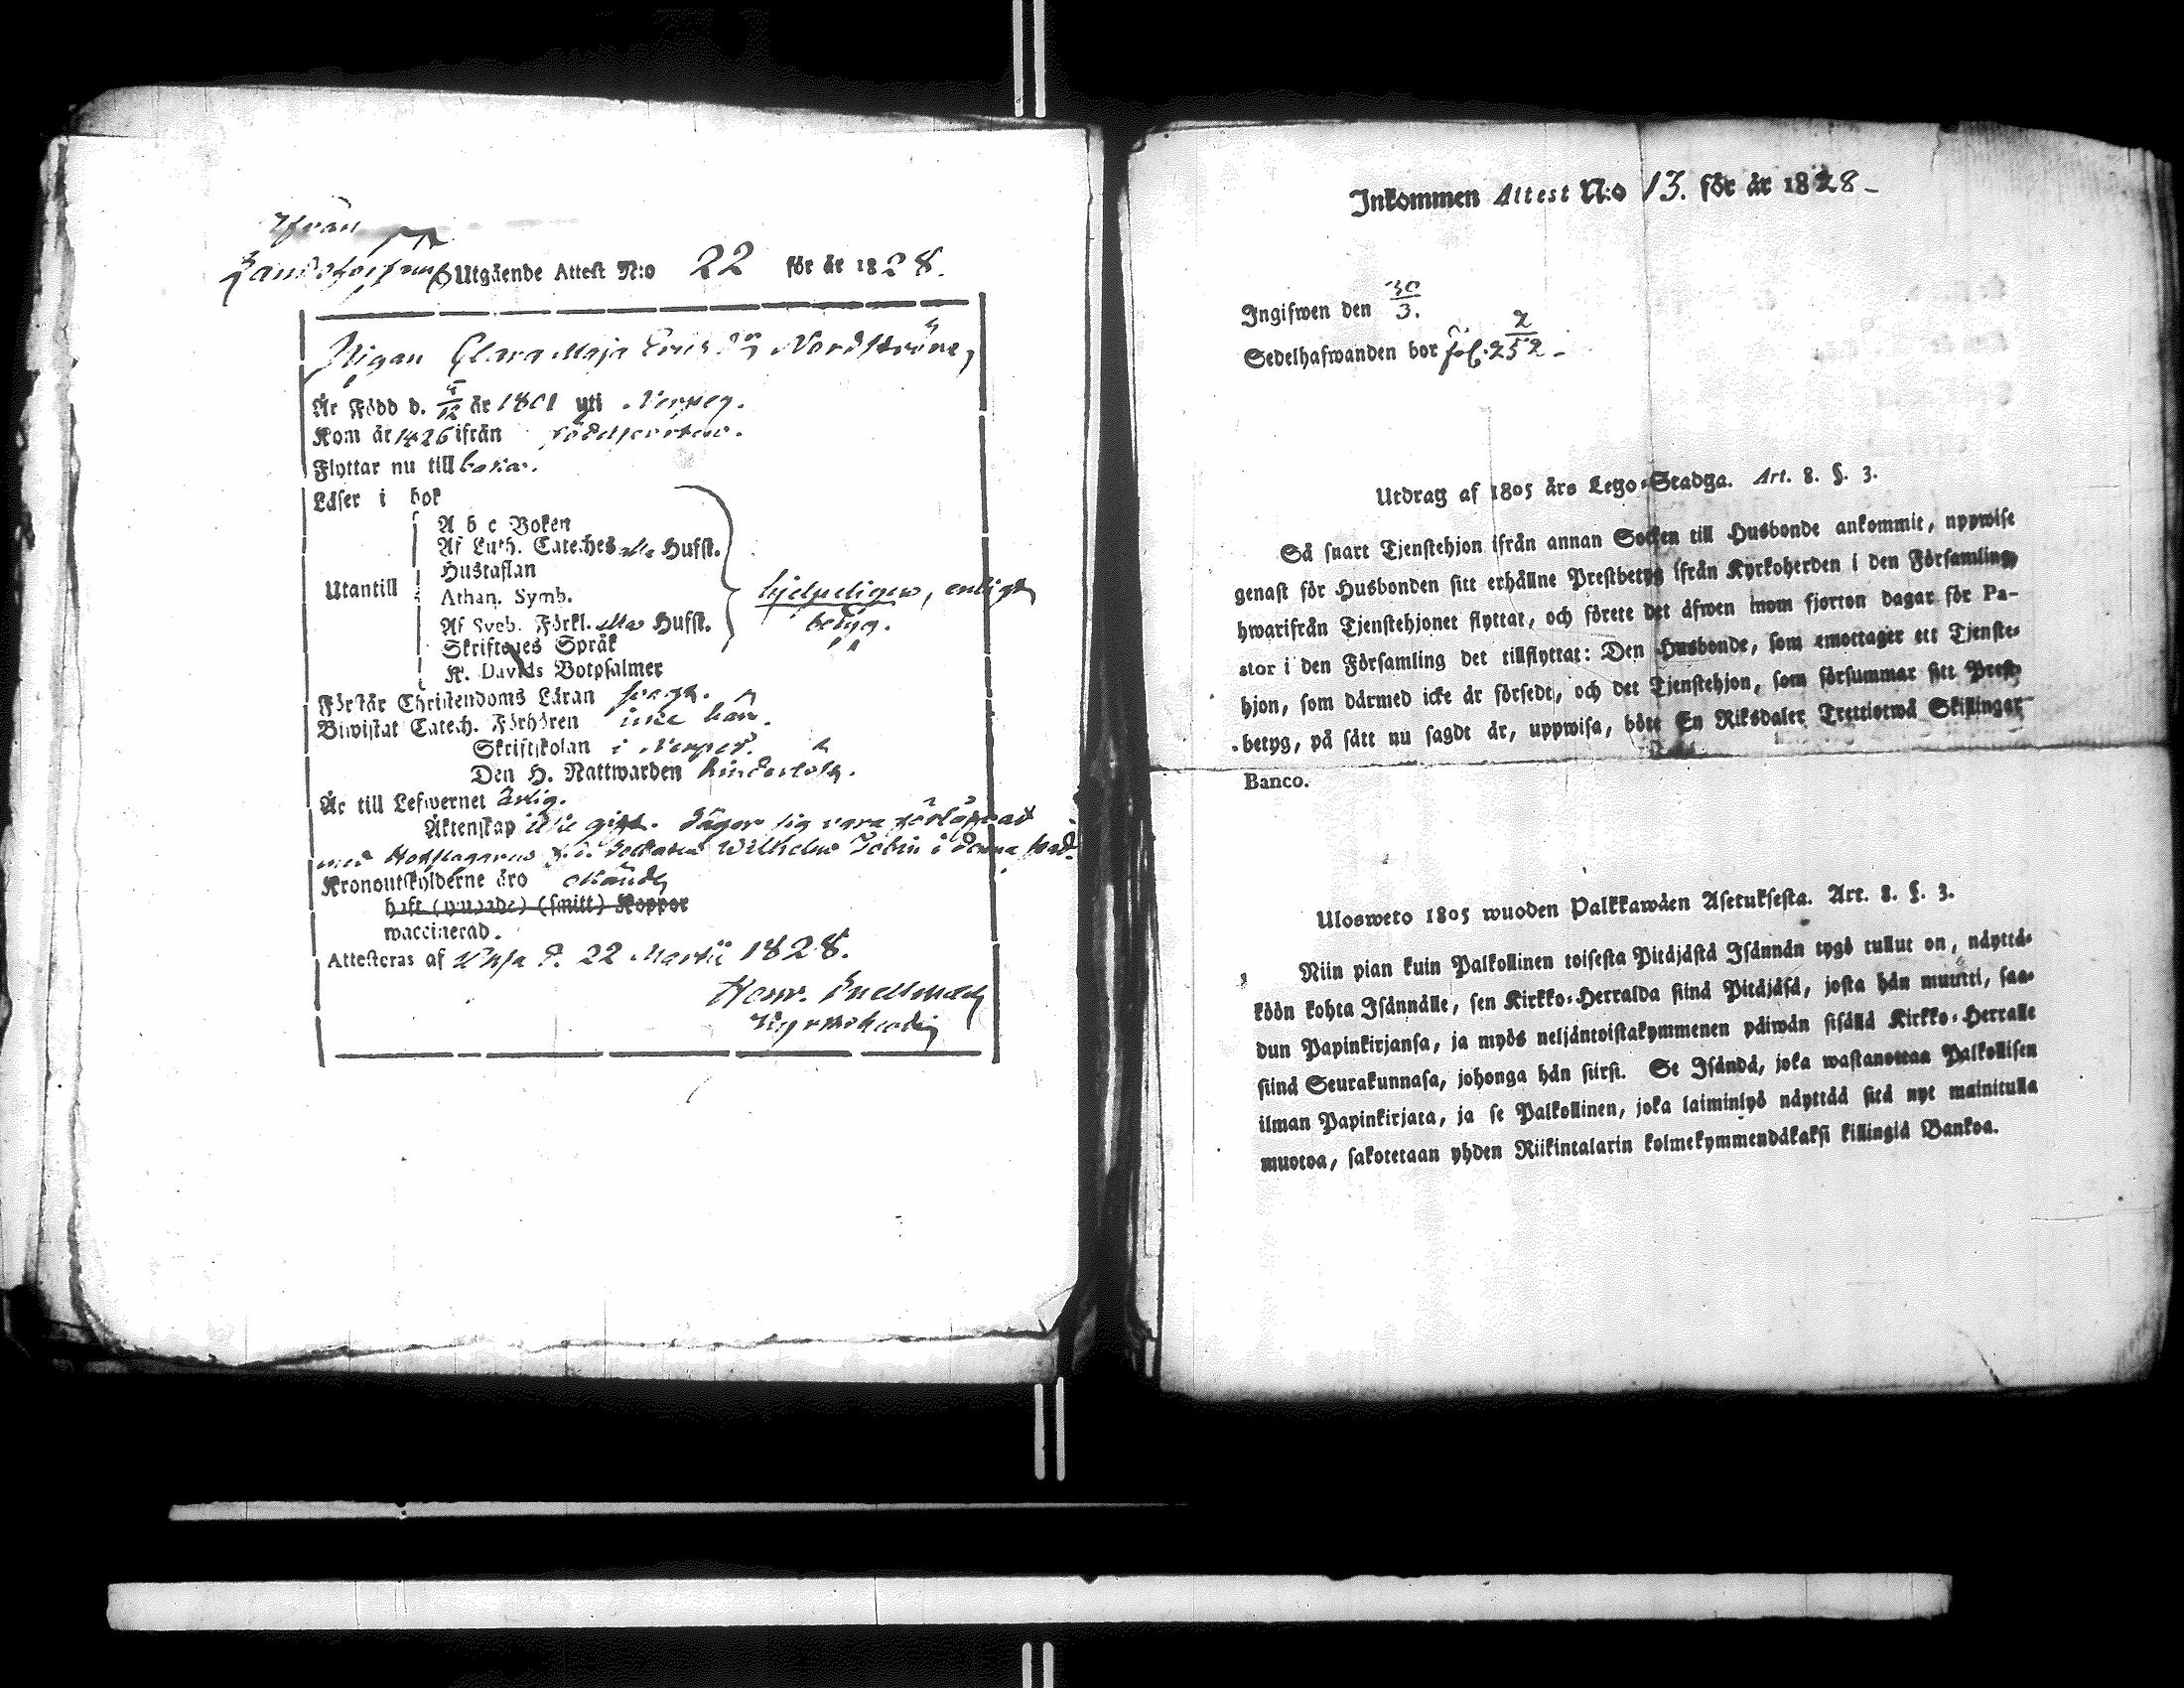 Ifrån
Utgående Attest N:o 22 för år 1828.
Pigan Clara Maja Ersdr Nordström,
Är Född d. 5/12 år 1801 uti Nerpes.
Kom år 1826 ifrån födelseorten.
Flyttar nu till
Läser i bok
A b c Boken
Af Luth. Cateches alla Hufst.
Hustaflan
Utantill
Athan. Symb.
hjelpeligen, enligt
Af Sveb. Förkl. alla Hufst.
betyg.
Skriftenes Språk
K. Davids Botpsalmer
Förstår Christendoms Läran svagt.
Biwistat Catech. Förhören icke här.
Skriftskolan i Nerpes.
Den H. Nattwarden
Är till Lefwernet ärlig.
Äktenskap icke gift. Säger sig vara förlofvad
med Wilhelm i denna stad.
Kronoutskylderne äro okände
haft (ympade) (smitt) Koppor
waccinerad.
Attesteras af Wasa d. 22 Martii 1828.
Henr. Snellman
Kyrkoherde
Inkommen Attest N:o 13. för år 1828
Ingifwen den 30/3.
Sedelhafwanden bor fol. 252
Utdrag af 1805 års Lego-Stadga. Art. 8. §. 3.
Så snart Tjenstehjon ifrån annan Socken till Husbonde ankommit, uppwise
genast för Husbonden sitt erhållne Prestbetyg ifrån Kyrkoherden i den Församling,
hwarifrån Tjenstehjonet flyttat, och förete det äfwen inom fjorton dagar för Pa-
stor i den Församling det tillflyttat: Den Husbonde, som emottager ett Tjenste-
hjon, som därmed icke är försedt, och det Tjenstehjon, som försummar sitt Prest-
betyg, på sätt nu sagdt är, uppwisa, böte En Riksdaler Trettiotwå Skillingar
Banco.
Ulosweto 1805 wuoden Palkkawäen Asetuksesta. Art. 8. §. 3.
Niin pian kuin Palkollinen toisesta Pitäjästä Isännän tygö tullut on, näyttä-
köön kohta Isännälle, sen Kirkko-Herralda siinä Pitäjäsä, josta hän muutti, saa-
dun Papinkirjansa, ja myös neljäntoistakymmenen päiwän sisällä Kirkko-Herralle
siinä Seurakunnasa, johonga hän siirsi. Se Isändä, joka wastanottaa Palkollisen
ilman Papinkirjata, ja se Palkollinen, joka laiminlyö näyttää sitä nyt mainitulla
muotoa, sakotetaan yhden Riikintalarin kolmekymmendäkaksi killingiä Bankoa.